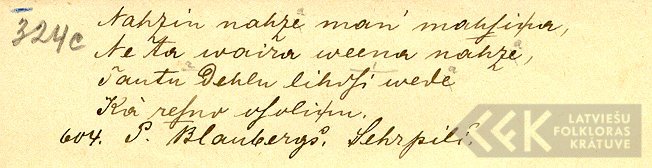 324c
Nahzin nahzē man' mahsiņa,
Ne ta waira weena nahzē,
Tautu Dehlu lihdsi wedē
Kà resno osoliņu.
604. P. Blaubergs. Sehrpilī.
LATVIEŠU
FOLKLORAS
KRĀTUVE